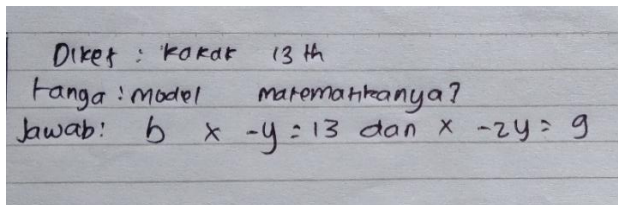 Diket : kakak 13 th
tanya : model matematikanya?
Jawab: b x -y = 13 dan x -2y = 9